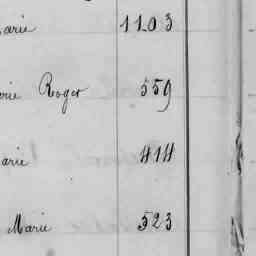 arie 1103
rie Roger 559
arie 414
Marie 523